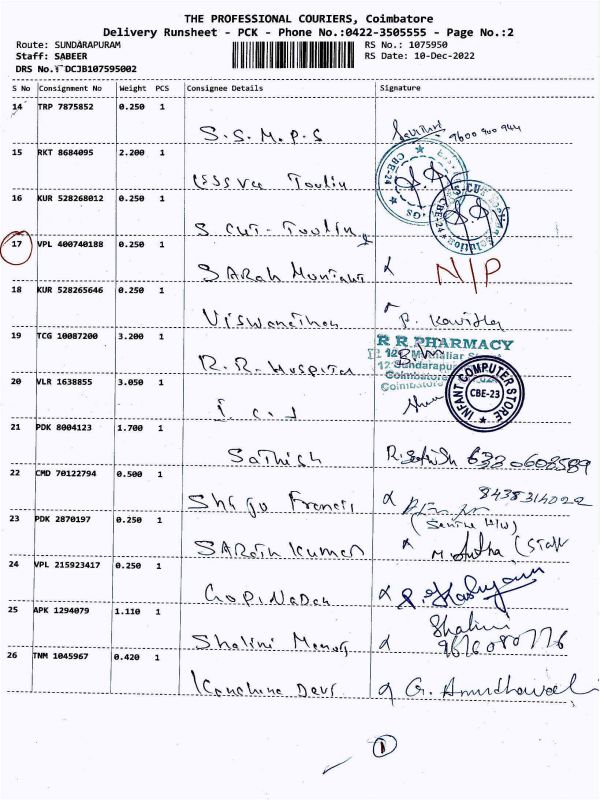 THE PROFESSIONAL COURIERS, Coimbatore
Delivery Runsheet - PCK - Phone No.:0422-3505555 - Page No.:2
Route: SUNDARAPURAM RS No.: 1075950
Staff: SABEER RS Date: 10-Dec-2022
DRS No.: DCJB107595002
S No Consignment No Weight PCS Consignee Details Signature
14 TRP 7875852 0.250 1
S.S.M.P.S 9600 900 944
15 RKT 8684095 2.200 1
CBE-24
16 KUR 528268012 0.250 1
S CUT-
17 VPL 400740188 0.250 1
SARAh N/P
18 KUR 528265646 0.250 1
Viswanathan P. Kavitha
19 TCG 10087200 3.200 1
R.R. Hospital
R R PHARMACY
20 VLR 1638855 3.050 1
INFANT COMPUTER STORE
CBE-23
21 PDK 8004123 1.700 1
Sathish R. Sathish
22 CMD 70122794 0.500 1
Shiju Francis 8438314022
23 PDK 2870197 0.250 1
SARath Kumar (Staff
24 VPL 215923417 0.250 1
GoPiNaDan
25 APK 1294079 1.110 1
Shalini Menon Shalini
26 TNM 1045967 0.420 1
Kanchana Devi G.
1